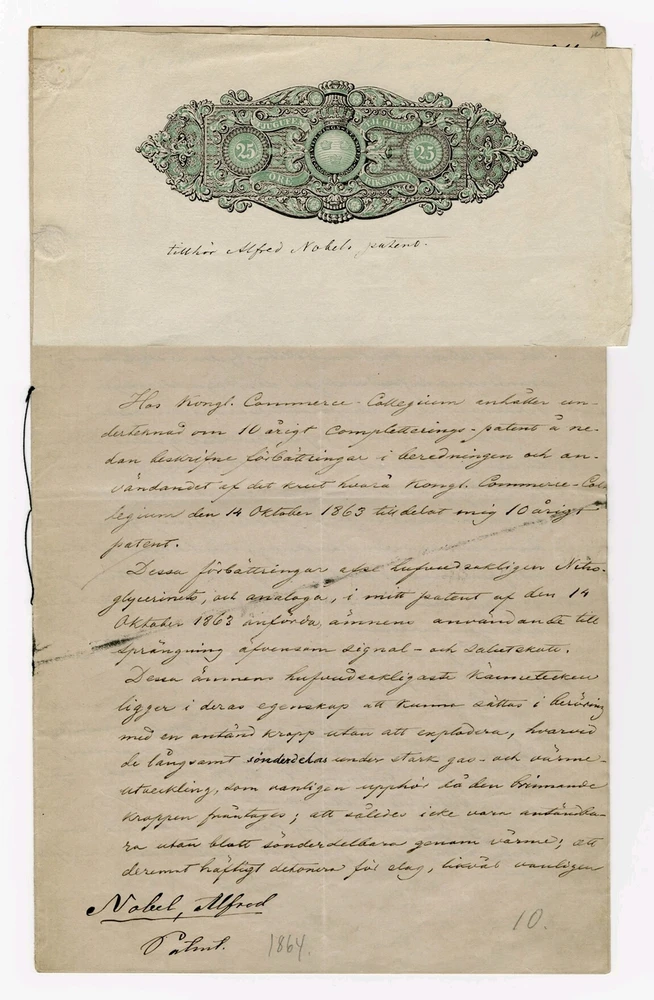 25
TJUGUFEM
TJUGUFEM
25
ÖRE
RIKSMYNT
tillhör Alfred Nobels patent.
Hos Kongl. Commerce-Collegium anhåller un-
dertecknad om 10 årigt completterings-patent å ne-
dan beskrifne förbättringar i beredningen och an-
vändandet af det krut hvarå Kongl. Commerce-Col-
legium den 14 Oktober 1863 tilldelat mig 10 årigt
patent.
Dessa förbättringar afse hufvudsakligen Nitro-
glycerinets, och analoga, i mitt patent af den 14
Oktober 1863 anförda, ämnens användande till
sprängning äfvensom signal- och salutskott.
Dessa ämnens hufvudsakligaste kännetecken
ligger i deras egenskap att kunna sättas i beröring
med en antänd kropp utan att explodera, hvarvid
de långsamt sönderdelas under stark gas- och värme-
utveckling, som vanligen upphör då den brinnande
kroppen fråntages; att således icke vara antändba-
ra utan blott sönderdelbara genom värme; att
deremot häftigt detonera för slag, likväl vanligen
Nobel, Alfred
Patent.
1864.
10.